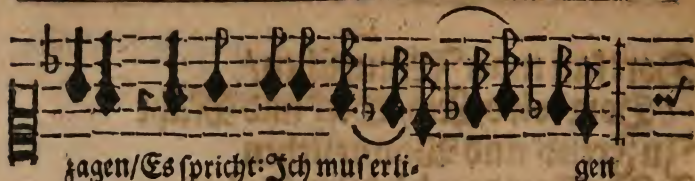 zagen/Es spricht: Ich mus erli- gen